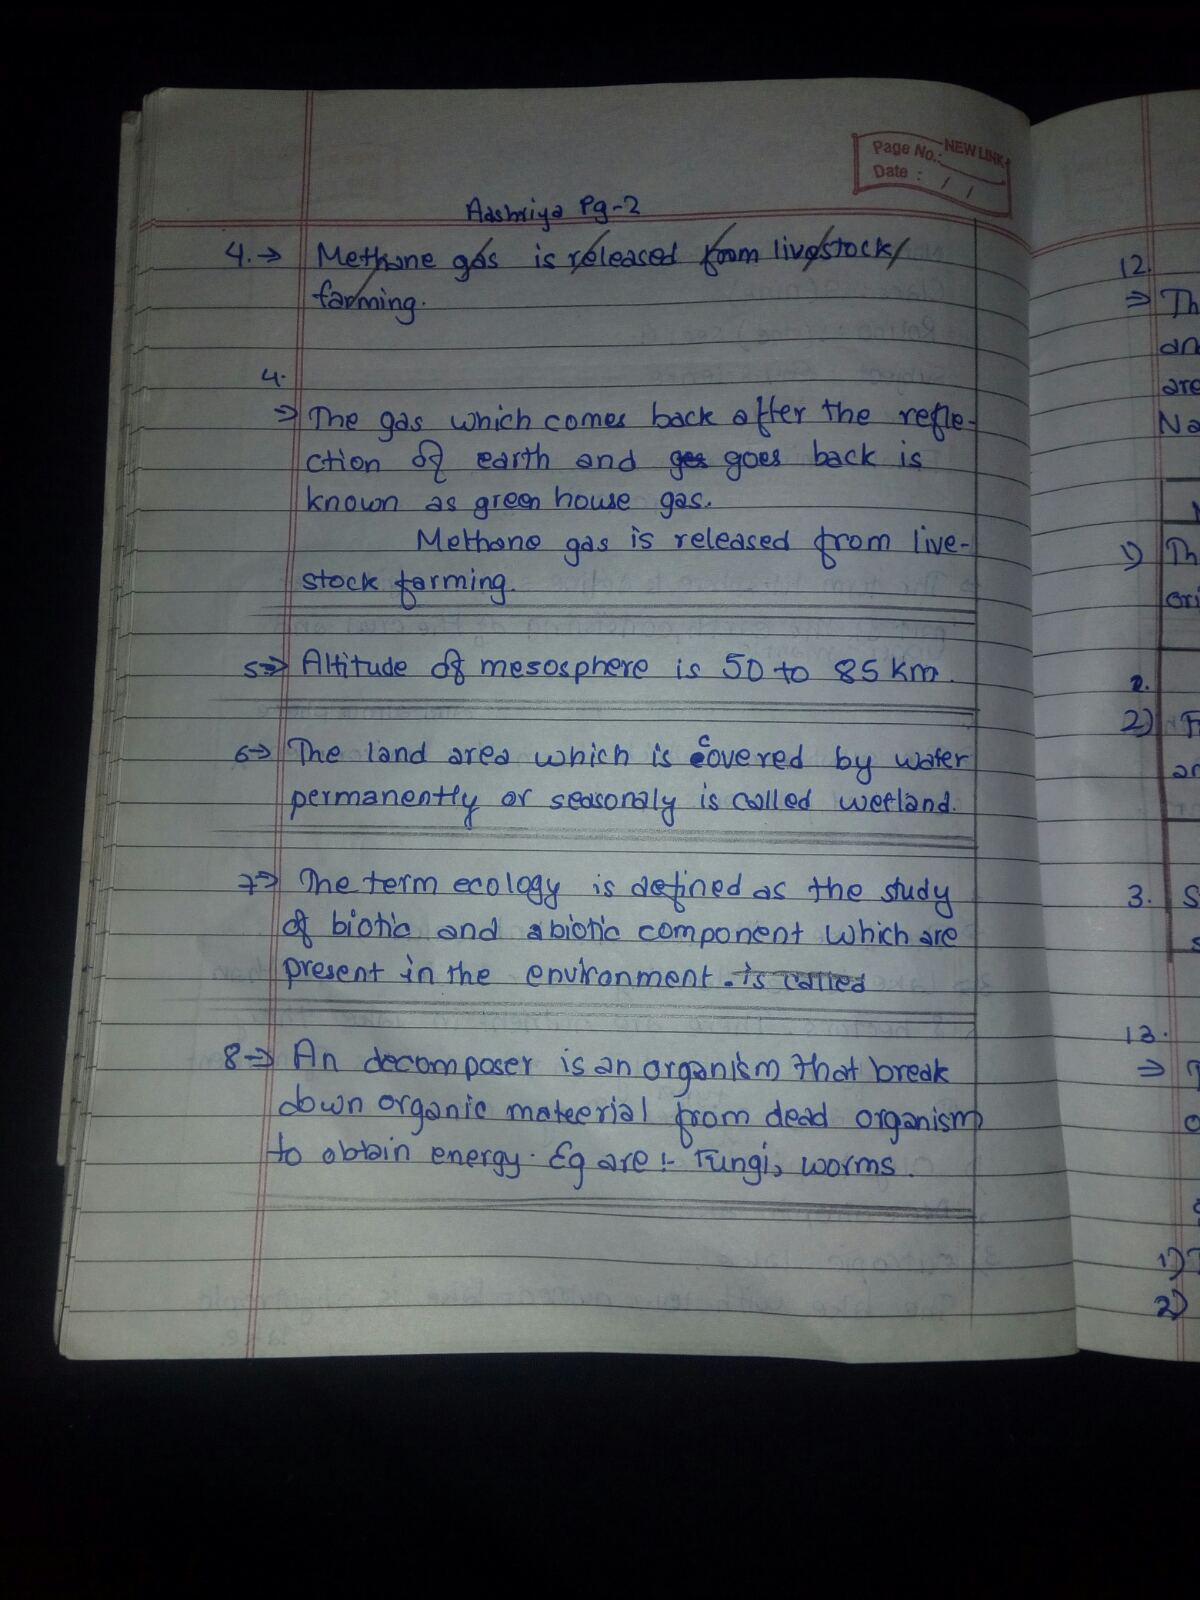 Page No.: NEW LINK
Date : / /
Aashriya Pg-2
4.→ Methane gas is released from livestock
farming.
4.
⇒ The gas which comes back after the refle-
ction of earth and ges goes back is
known as green house gas.
Methane gas is released from live-
stock farming.
5⇒ Altitude of mesosphere is 50 to 85 km.
6⇒ The land area which is covered by water
permanently or seasonaly is called wetland.
7⇒ The term ecology is defined as the study
of biotic and abiotic component which are
present in the environment. is called
8⇒ An decomposer is an organism that break
down organic mateerial from dead organism
to obtain energy. Eg are :- Fungi, worms.
12.
⇒ Th
an
are
Na
1) Th
ori
2.
2) F
an
3. S
s
13.
⇒ T
o
1) T
2)